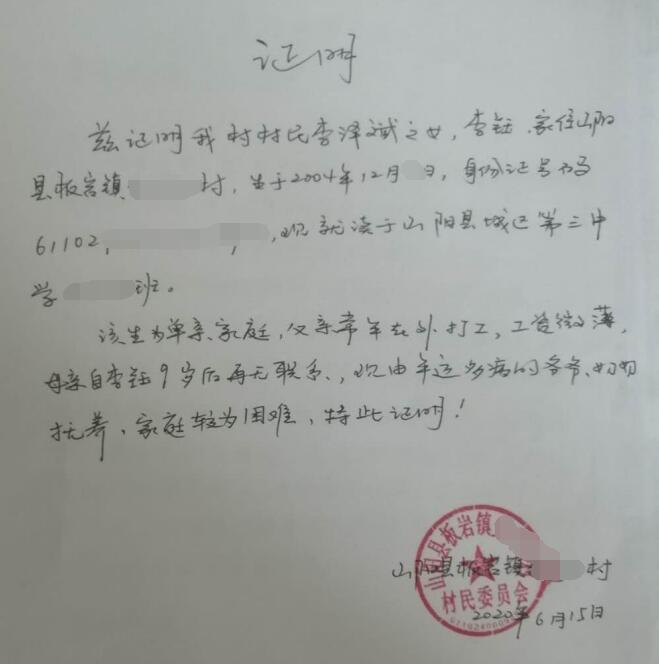 证明
兹证明我村村民李泽斌之女，李钰，家住山阳
县板岩镇 村，生于2004年12月 日，身份证号码
61102 ，现就读于山阳县城区第三中
学 班。
该生为单亲家庭，父亲常年在外打工，工资微薄，
母亲自李钰9岁后再无联系，现由年迈多病的爷爷、奶奶
抚养，家庭较为困难，特此证明！
山阳县板岩镇
山阳县板岩镇 村
村民委员会
2020年6月15日